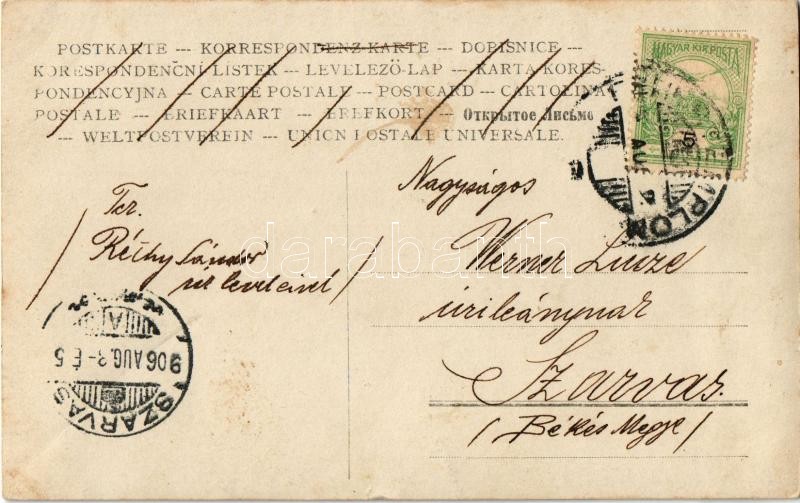 POSTKARTE --- KORRESPONDENZ-KARTE --- DOPISNICE ---
KORESPONDENČNÍ LÍSTEK --- LEVELEZŐ-LAP --- KARTA KORES-
PONDENCYJNA --- CARTE POSTALE --- POSTCARD --- CARTOLINA
POSTALE --- BRIEFKAART --- BREFKORT --- Открытое Письмо
--- WELTPOSTVEREIN --- UNION POSTALE UNIVERSALE.
MAGYAR KIR. POSTA
Nagyságos
Werner Luize
úrileánynak
Szarvas.
/ Békés Megye /
/ Réthy Sándor
úr leveleivel /
darabanth.com
906 AUG. 3 - É 5
SZARVAS